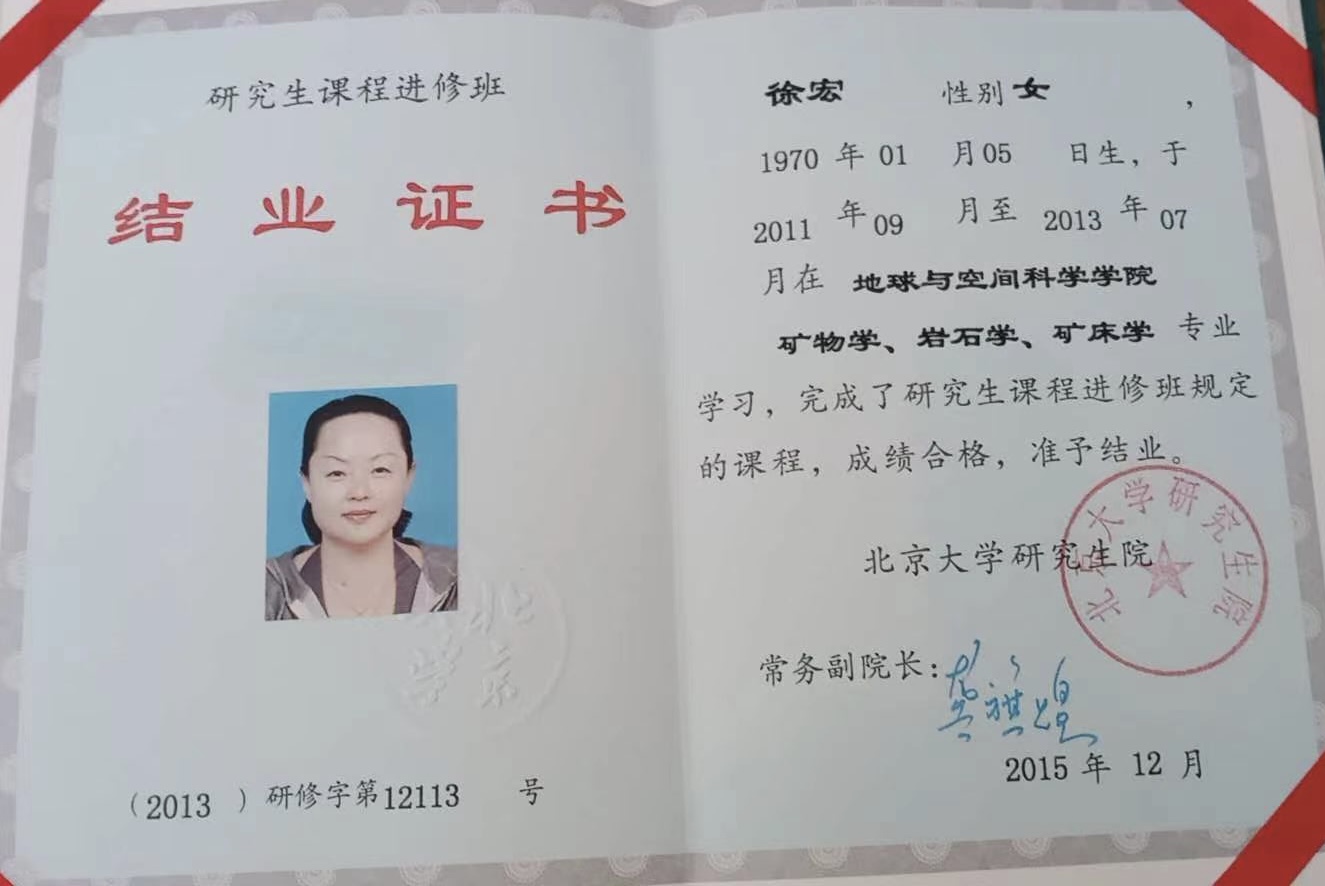 研究生课程进修班
结业证书
北京
学
（2013 ）研修字第12113 号
徐宏 性别女 ，
1970 年 01 月05 日生，于
2011 年09 月至 2013 年 07
月在 地球与空间科学学院
矿物学、岩石学、矿床学 专业
学习，完成了研究生课程进修班规定
的课程，成绩合格，准予结业。
北京大学研究生院
北京大学研究生院
常务副院长：龚旗煌
2015 年 12 月